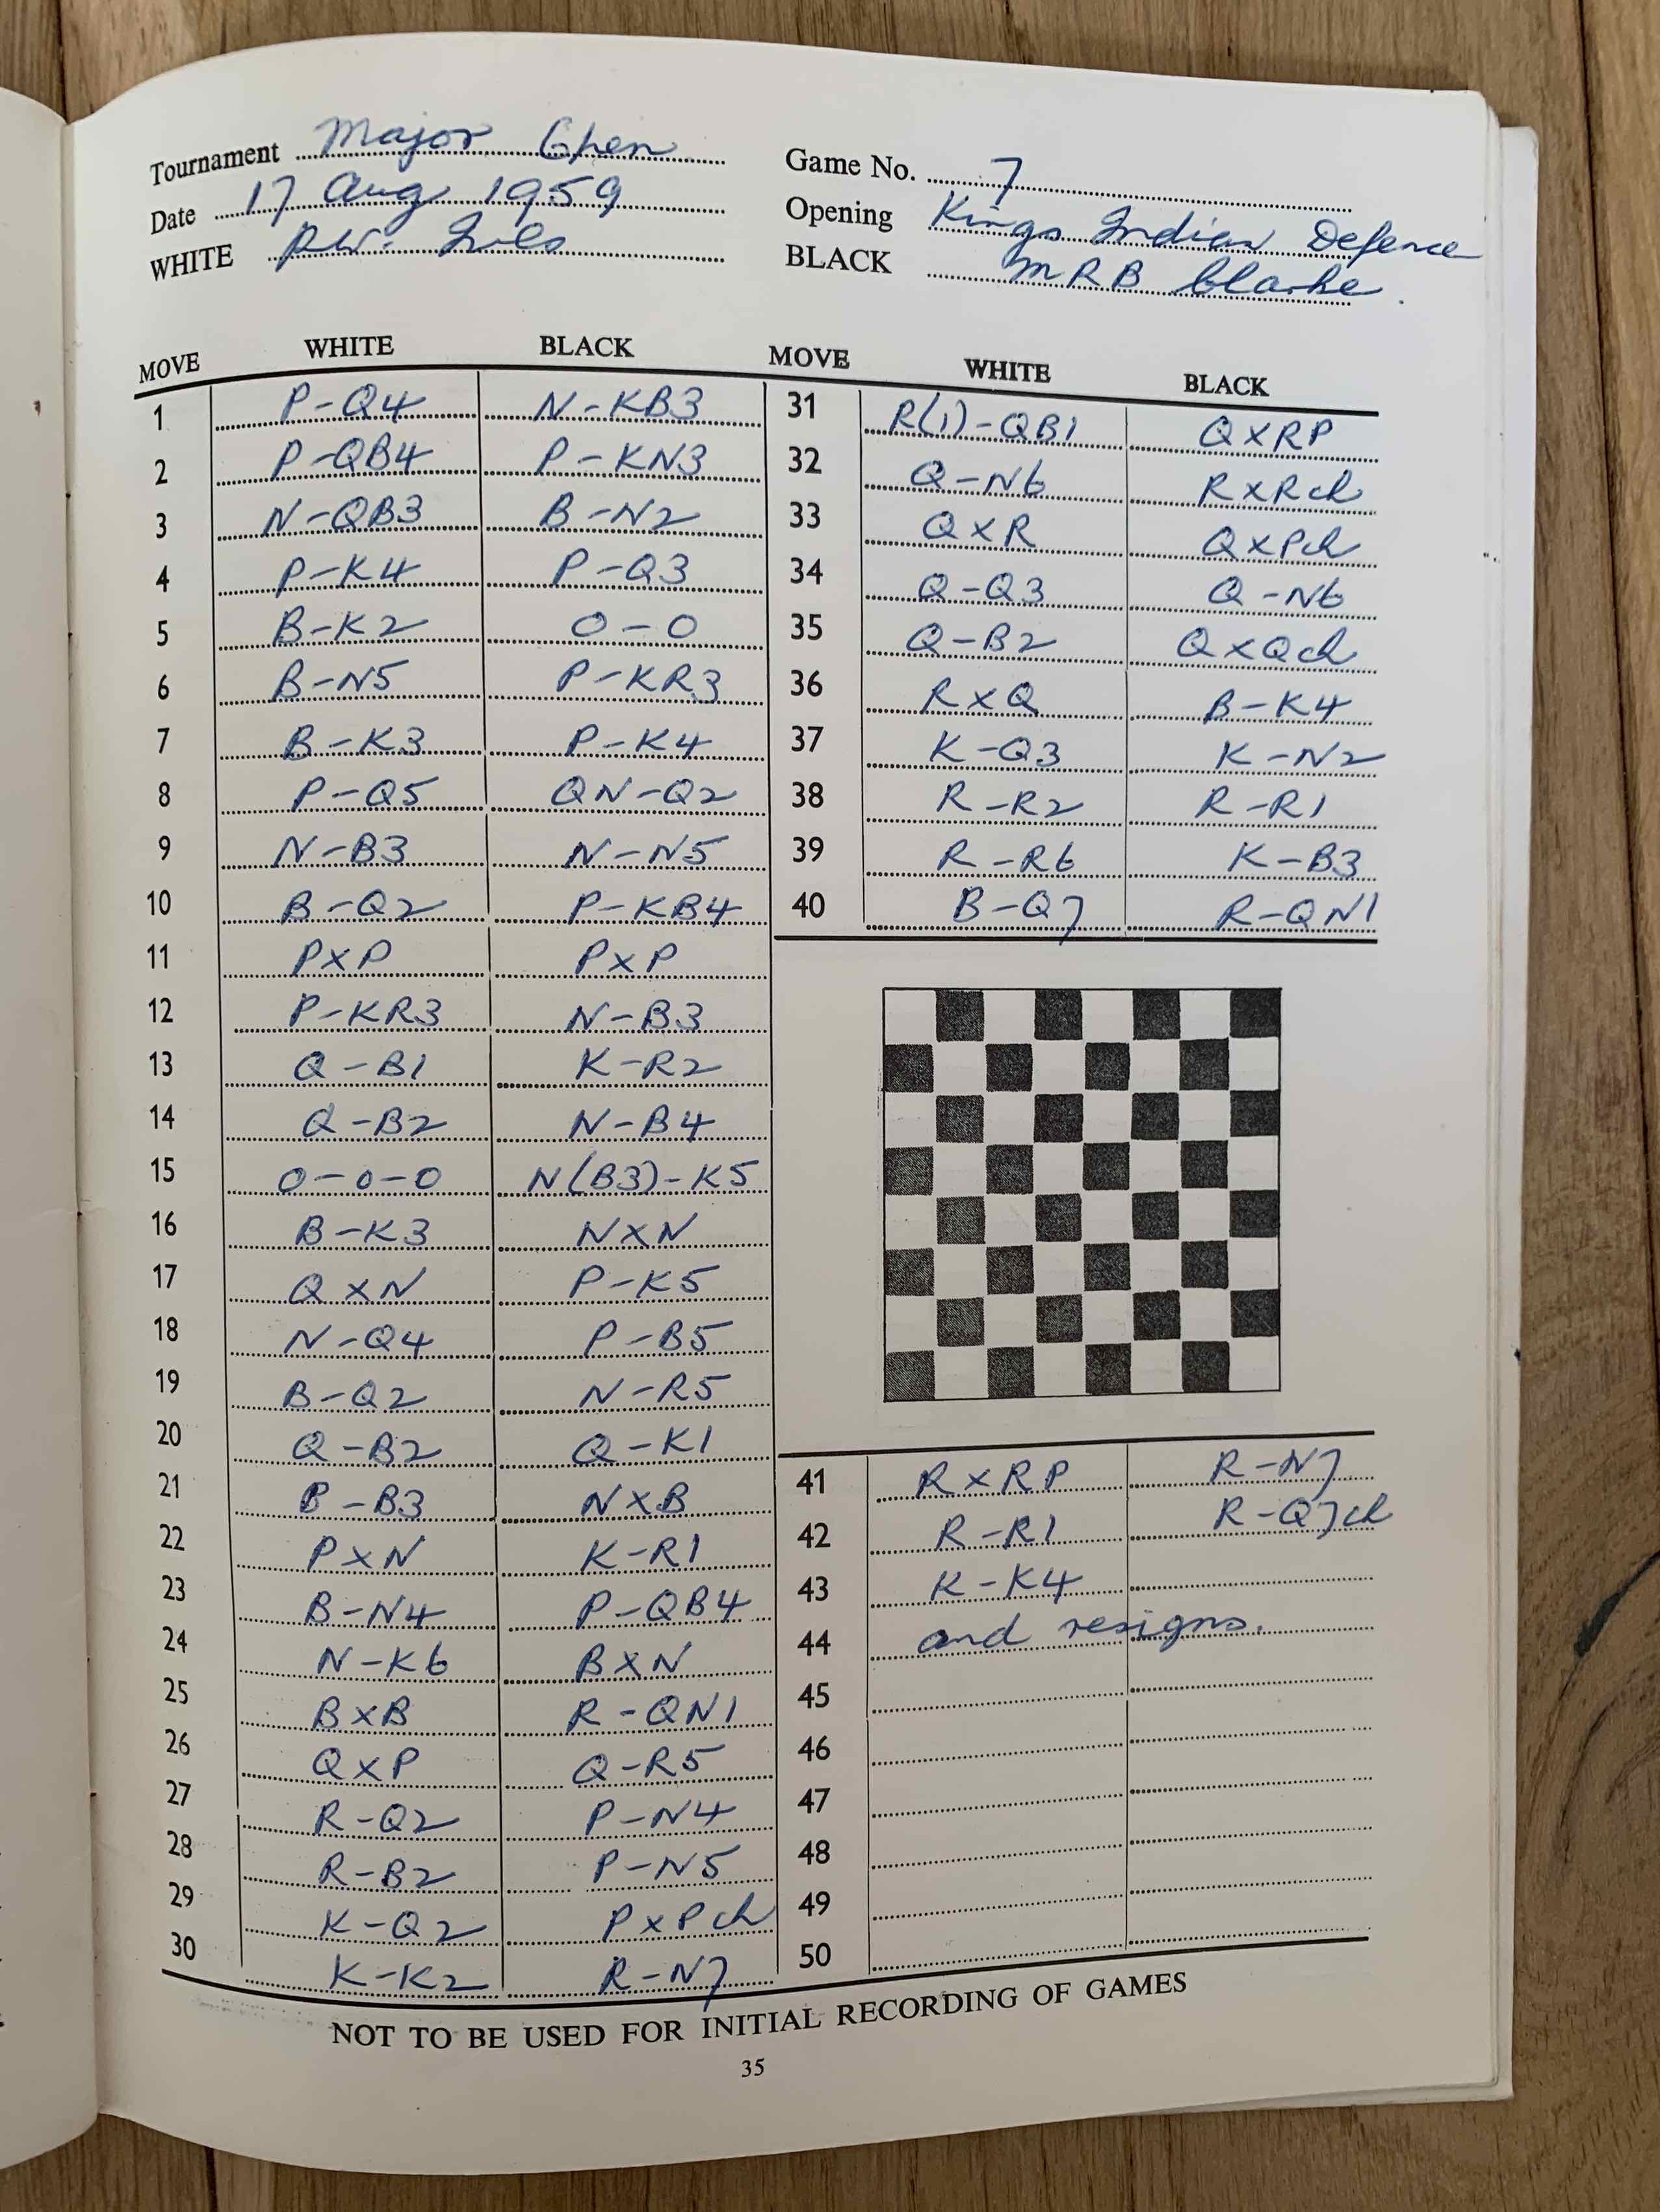 Tournament Major Open
Date 17 Aug 1959
WHITE
Game No. 7
Opening Kings Indian Defence
BLACK MRB Clarke.
MOVE WHITE BLACK
1 P-Q4 N-KB3
2 P-QB4 P-KN3
3 N-QB3 B-N2
4 P-K4 P-Q3
5 B-K2 0-0
6 B-N5 P-KR3
7 B-K3 P-K4
8 P-Q5 QN-Q2
9 N-B3 N-N5
10 B-Q2 P-KB4
11 PxP PxP
12 P-KR3 N-B3
13 Q-B1 K-R2
14 Q-B2 N-B4
15 0-0-0 N(B3)-K5
16 B-K3 NxN
17 QxN P-K5
18 N-Q4 P-B5
19 B-Q2 N-R5
20 Q-B2 Q-K1
21 B-B3 NxB
22 PxN K-R1
23 B-N4 P-QB4
24 N-K6 BxN
25 BxB R-QN1
26 QxP Q-R5
27 R-Q2 P-N4
28 R-B2 P-N5
29 K-Q2 PxPch
30 K-K2 R-N7
MOVE WHITE BLACK
31 R(1)-QB1 QxRP
32 Q-N6 RxRch
33 QxR QxPch
34 Q-Q3 Q-N6
35 Q-B2 QxQch
36 RxQ B-K4
37 K-Q3 K-N2
38 R-R2 R-R1
39 R-R6 K-B3
40 B-Q7 R-QN1
41 RxRP R-N7
42 R-R1 R-Q7ch
43 K-K4
44 and resigns.
45
46
47
48
49
50
NOT TO BE USED FOR INITIAL RECORDING OF GAMES
35